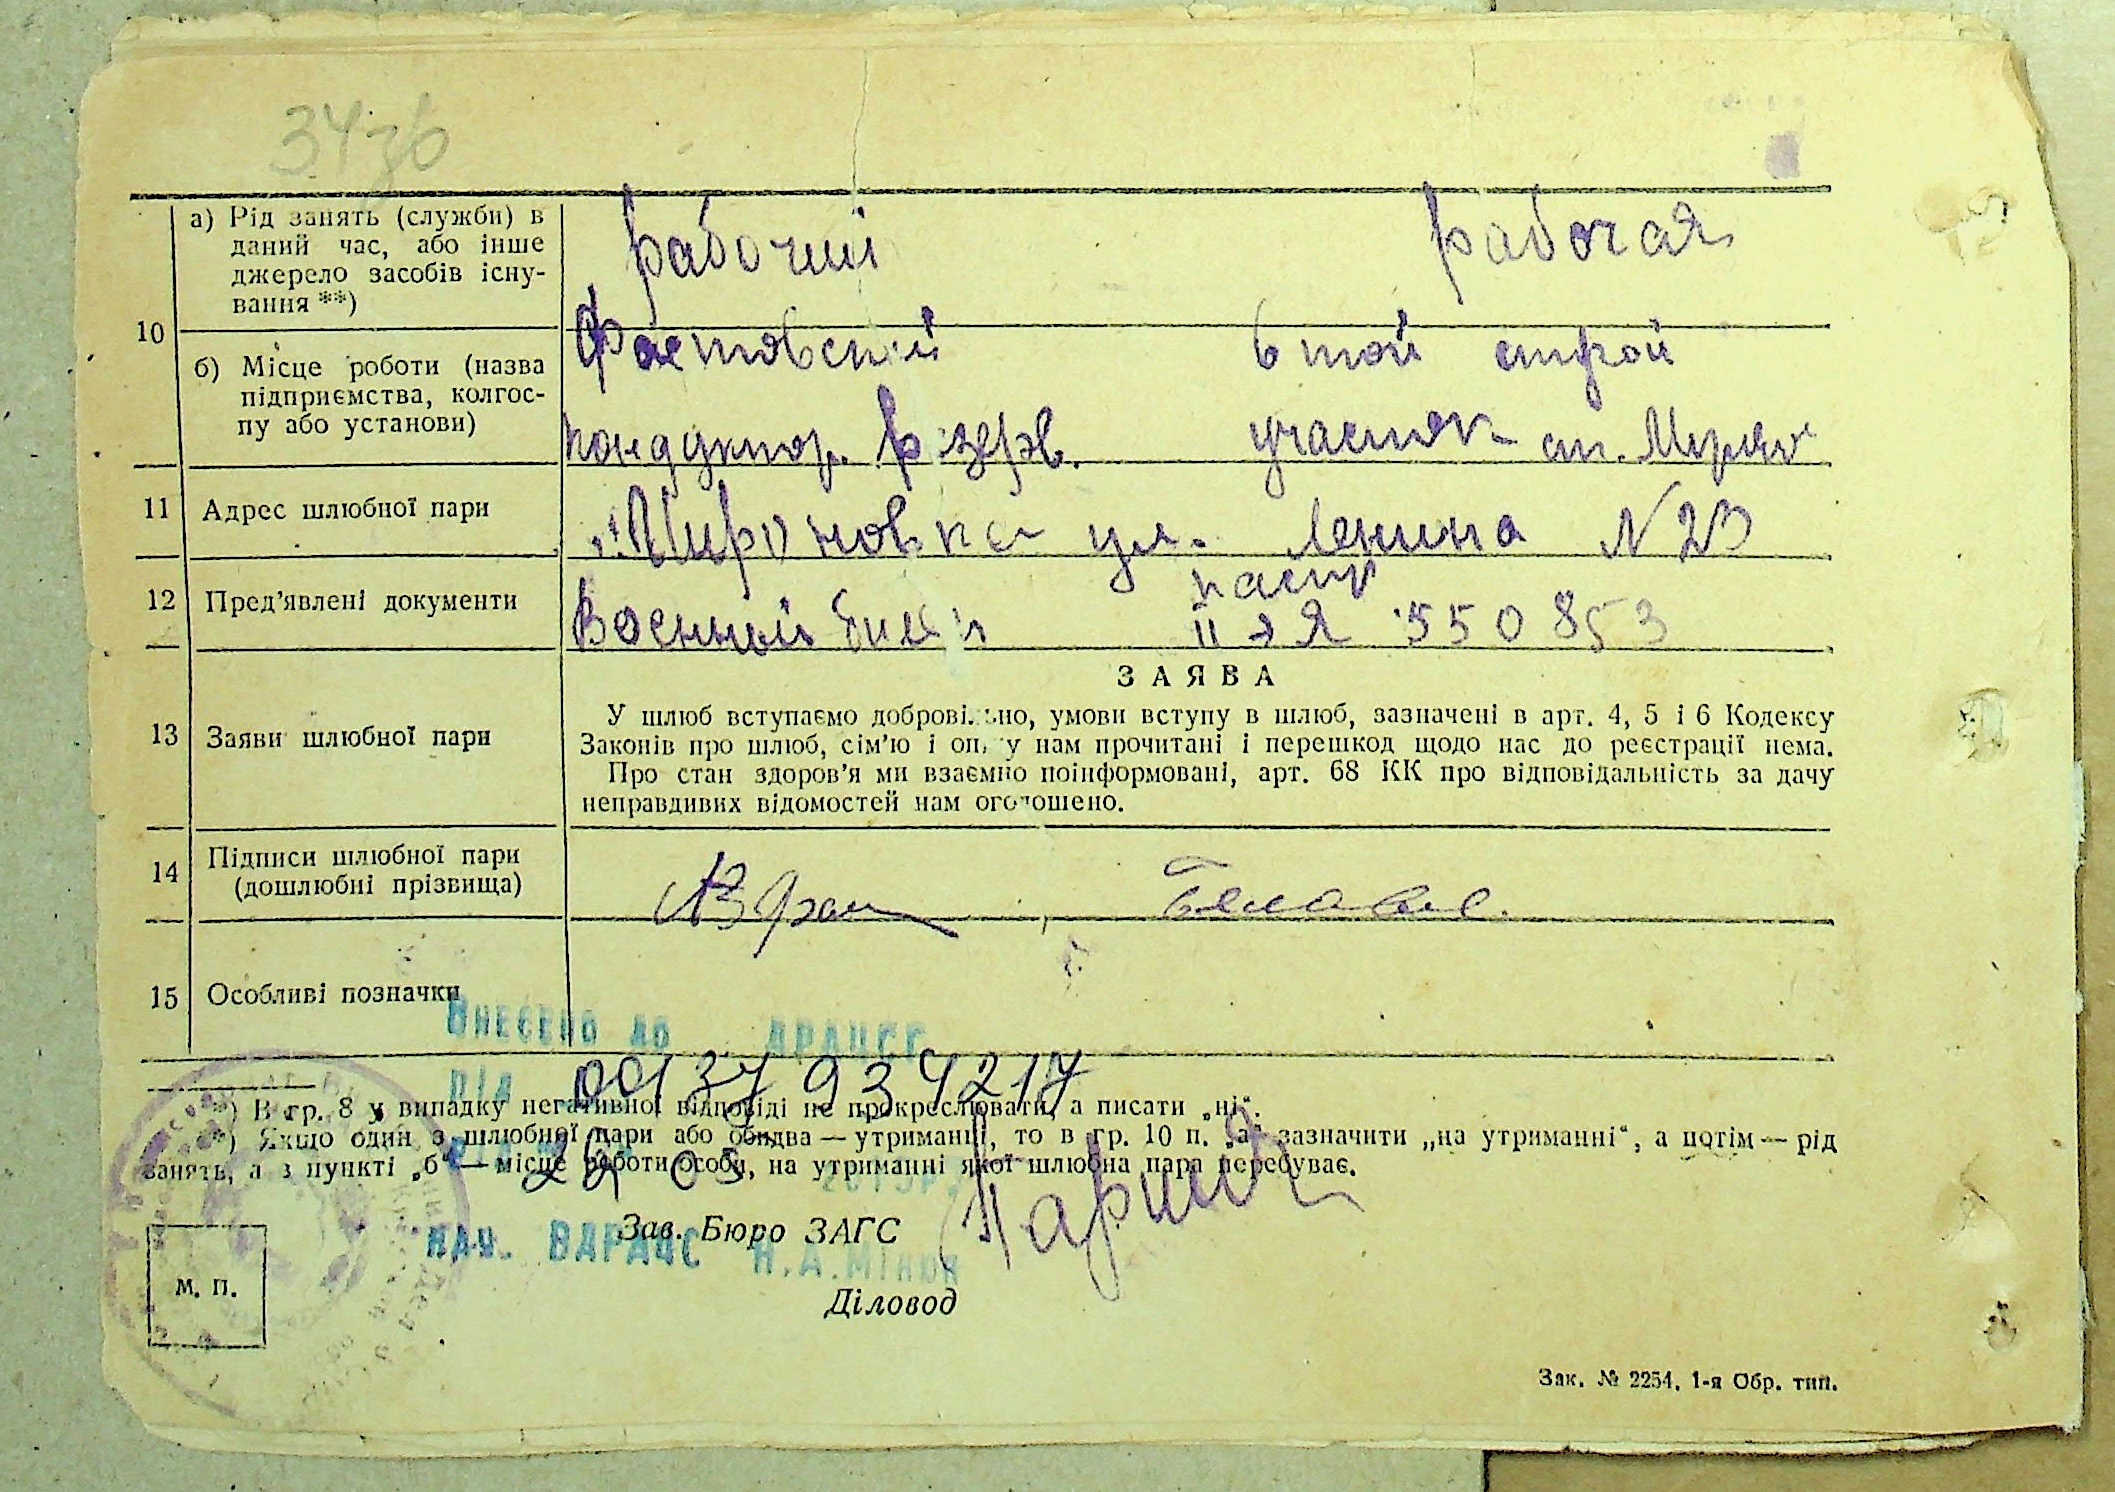 34зв
10
а) Рід занять (служби) в
даний час, або інше
джерело засобів існу-
вання **)
рабочий
рабочая
б) Місце роботи (назва
підприємства, колгос-
пу або установи)
Фастовский
кондуктор. резерв.
строй
участок ст.
11
Адрес шлюбної пари
Мироновка ул. Ленина N 23
12
Пред'явлені документи
Военный билет
пасп
550853
13
Заяви шлюбної пари
ЗАЯВА
У шлюб вступаємо добровільно, умови вступу в шлюб, зазначені в арт. 4, 5 і 6 Кодексу
Законів про шлюб, сім'ю і опіку нам прочитані і перешкод щодо нас до реєстрації нема.
Про стан здоров'я ми взаємно поінформовані, арт. 68 КК про відповідальність за дачу
неправдивих відомостей нам оголошено.
14
Підписи шлюбної пари
(дошлюбні прізвища)
15
Особливі позначки
Внесено до ДРАЦСГ
від 00137934217
*) В гр. 8 у випадку негативної відповіді не прокреслювати, а писати „ні“.
**) Якщо один з шлюбної пари або обидва — утриманці, то в гр. 10 п. „а“ зазначити „на утриманні“, а потім — рід
занять, а з пункті „б“ — місце роботи особи, на утриманні якої шлюбна пара перебуває.
Зав. Бюро ЗАГС
нач. ВДРАЦС Н.А.Мінюк
М. П.
Діловод
Зак. № 2254, 1-я Обр. тип.